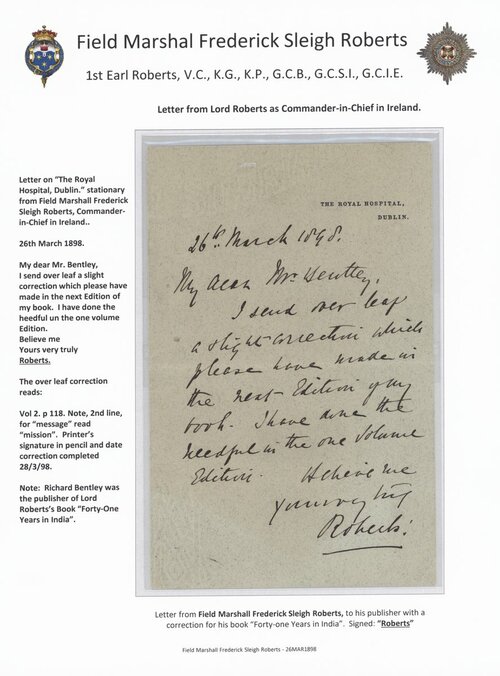 Field Marshal Frederick Sleigh Roberts
1st Earl Roberts, V.C., K.G., K.P., G.C.B., G.C.S.I., G.C.I.E.
Letter from Lord Roberts as Commander-in-Chief in Ireland.
Letter on “The Royal
Hospital, Dublin.” stationary
from Field Marshall Frederick
Sleigh Roberts, Commander-
in-Chief in Ireland..
26th March 1898.
My dear Mr. Bentley,
I send over leaf a slight
correction which please have
made in the next Edition of
my book.  I have done the
heedful un the one volume
Edition.
Believe me
Yours very truly
Roberts.
The over leaf correction
reads:
Vol 2. p 118. Note, 2nd line,
for “message” read
“mission”.  Printer’s
signature in pencil and date
correction completed
28/3/98.
Note:  Richard Bentley was
the publisher of Lord
Roberts’s Book “Forty-One
Years in India”.
THE ROYAL HOSPITAL,
DUBLIN.
26th March 1898.
My dear Mr. Bentley,
I send over leaf
a slight correction which
please have made in
the next Edition of my
book. I have done the
needful in the one Volume
Edition. Believe me
Yours very truly
Roberts.
Letter from Field Marshall Frederick Sleigh Roberts, to his publisher with a
correction for his book “Forty-one Years in India”.  Signed: “Roberts”
Field Marshall Frederick Sleigh Roberts - 26MAR1898